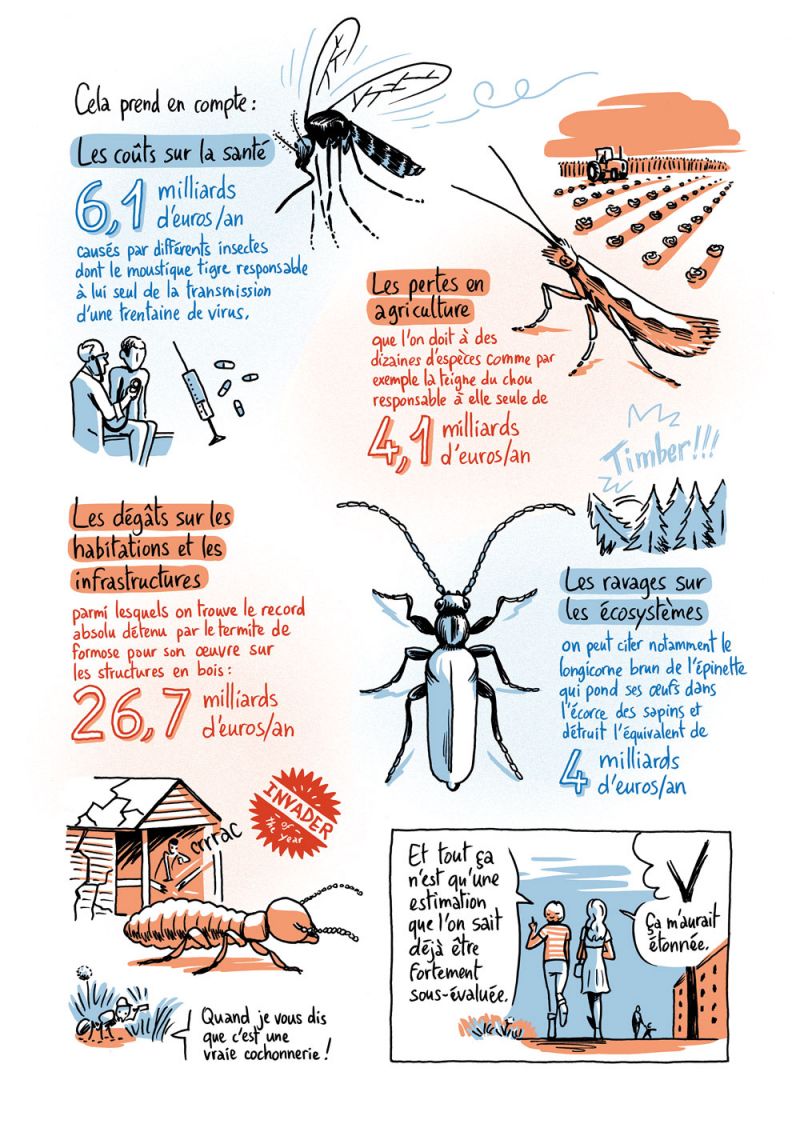 Cela prend en compte :
Les coûts sur la santé
6,1 milliards
d'euros/an
causés par différents insectes
dont le moustique tigre responsable
à lui seul de la transmission
d'une trentaine de virus.
Les pertes en
agriculture
que l'on doit à des
dizaines d'espèces comme par
exemple la teigne du chou
responsable à elle seule de
4,1 milliards
d'euros/an
Timber!!!
Les dégâts sur les
habitations et les
infrastructures
parmi lesquels on trouve le record
absolu détenu par le termite de
formose pour son œuvre sur
les structures en bois :
26,7 milliards
d'euros/an
Les ravages sur
les écosystèmes
on peut citer notamment le
longicorne brun de l'épinette
qui pond ses œufs dans
l'écorce des sapins et
détruit l'équivalent de
4 milliards
d'euros/an
INVADER
of the year
crrrac
Quand je vous dis
que c'est une
vraie cochonnerie !
Et tout ça
n'est qu'une
estimation
que l'on sait
déjà être
fortement
sous-évaluée.
Ça m'aurait
étonnée.